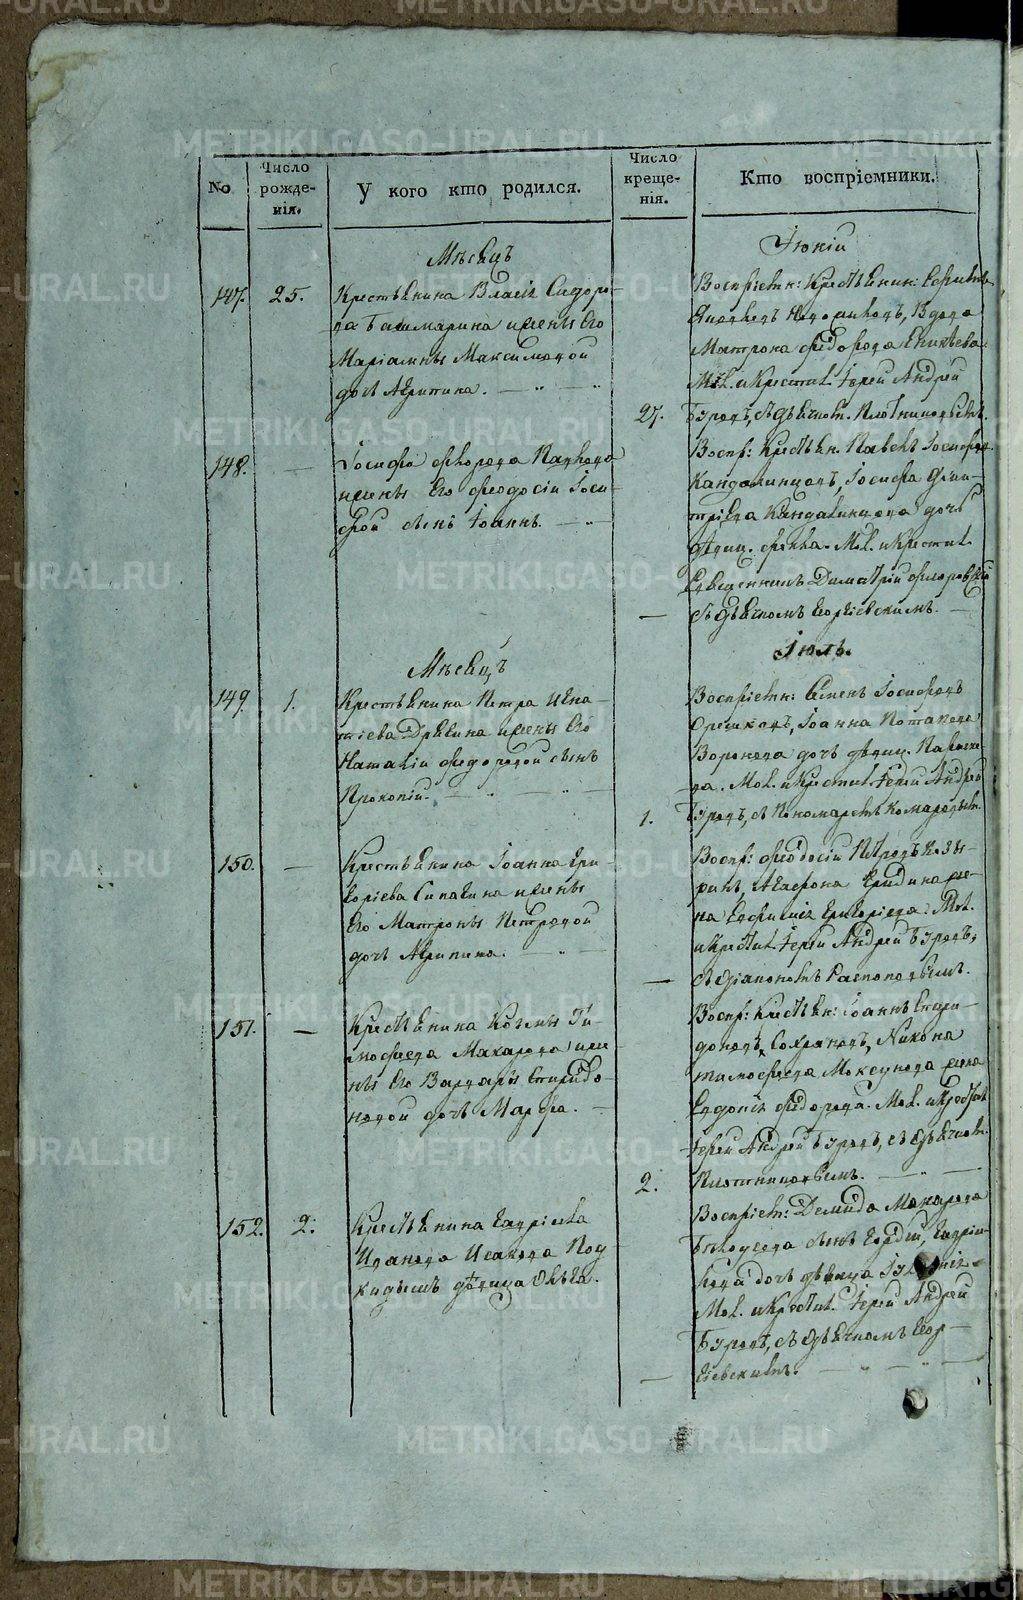 METRIKI.GASO-URAL.RU
№
Число рожде-нія.
У кого кто родился.
Число креще-нія.
Кто воспріемники.
Мѣсяцъ
Іюній
147. 25.
Крестьянина Власія Сидоро-
ва Башмарина и жены Его
Маріамны Максимовой
дочь Агрипина.
27.
Воспріем: Крестьянин:
Вдова
Матрона Федорова
Мол. и Крестил Іерей Андрей
Буровъ, съ дьячком. Плотниковымъ.
148. —
Іосифа Фролова
и жены Его Феодосіи Іоси-
фовой сынъ Іоаннъ.
—
Воспр: Крестьян. Павелъ Іосифовъ
Кандалинцовъ, Іосифа Дми-
тріева Кандалинцова дочь
дѣвиц. Фекла. Мол. и Крестил
Священникъ Димитрій Флоровскій
съ дьячкомъ Георгіевскимъ.
Мѣсяцъ
Іюль.
149. 1.
Крестьянина Петра Игна-
тіева Дрягина и жены Его
Наталіи Федоровой сынъ
Прокопій.
1.
Воспріем: Семенъ Іосифовъ
Орешковъ, Іоанна Потапова
Воронова дочь дѣвиц. Параске-
ва. Мол. и Крестил Іерей Андрей
Буровъ, съ Пономаремъ Комаровым.
150. —
Крестьянина Іоанна Гри-
горіева Сипягина и жены
Его Матроны Петровой
дочь Агрипина.
—
Воспр: Феодосій Петровъ Козы-
ринъ, Агафона же-
на Евфимія Григоріева. Мол.
и Крестил Іерей Андрей Буровъ,
съ діакономъ Распоповымъ.
151. —
Крестьянина Козмы Ти-
мофеева Макарова и же-
ны Его Варвары Спиридо-
новой дочь Марфа.
2.
Воспр: Крестьян: Іоаннъ Спири-
доновъ Никона
Тимофеева жена
Евдокія Федорова. Мол. и Крестил
Іерей Андрей Буровъ, съ дьячком.
Плотниковымъ.
152. 2.
Крестьянина
Иванова Исакова Под-
кидышъ дѣвица Ольга.
—
Воспріем: Демида Макарова
сынъ
дочь дѣвица
Мол. и Крестил. Іерей Андрей
Буровъ, съ дьячкомъ Геор-
гіевскимъ.